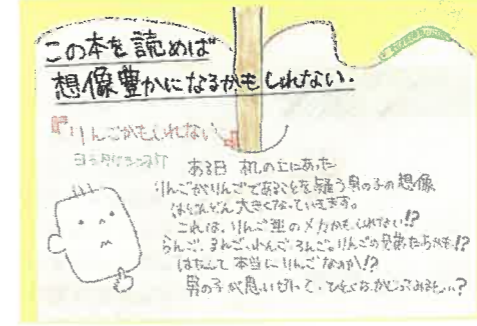 この本を読めば
想像豊かになるかもしれない.
『りんごかもしれない』
ヨシタケシンスケ
ある日 机の上にあった
りんごがりんごであることを疑う男の子の想像
はどんどん大きくなっていきます。
これは、りんご型のメカかもしれない!?
らんご、まんご、んご、るんご。りんごの兄弟たちかも!?
はたして 本当に りんごなのか!?
男の子が思い切って・ひとくちかじってみると…?